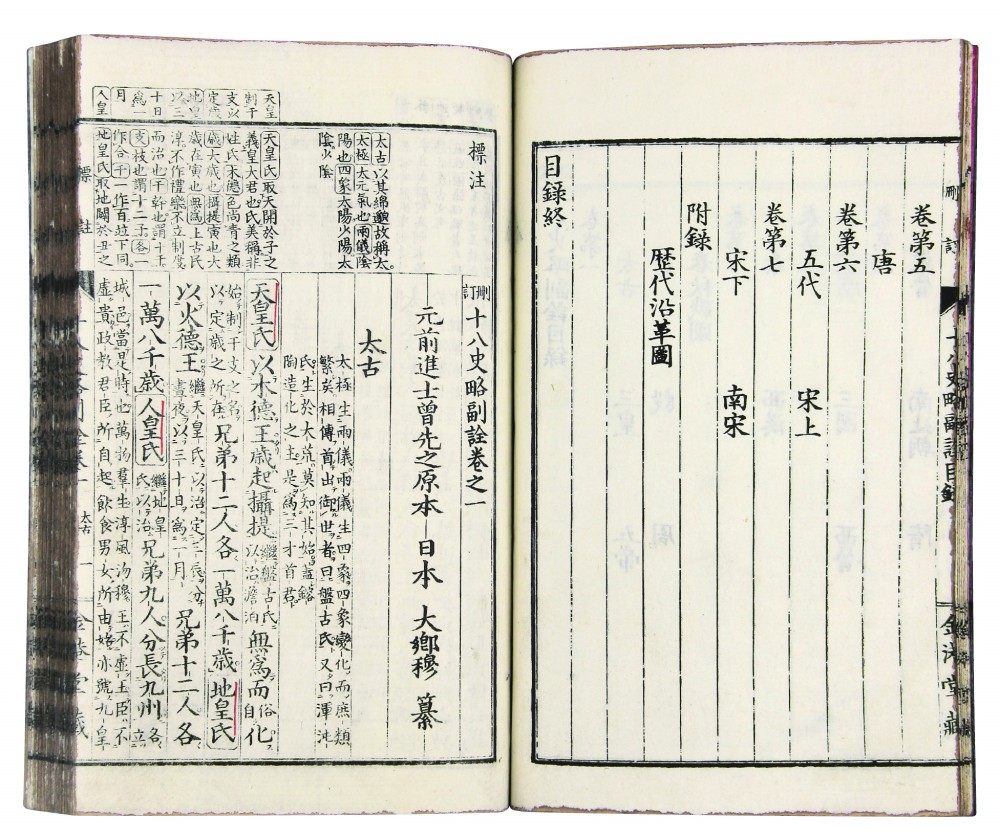 卷第五
唐
卷第六
五代　宋上
卷第七
宋下　南宋
附錄
歷代沿革圖
目録終
標注
天皇
制干
支以
定歲
地皇
以三
十日
爲一
月
人皇
太古以其綿邈故稱太
太極太元氣也兩儀陰
陽也四象太陽少陽太
陰少陰
天皇氏取天開於子之
義皇大君也氏美稱非
姓氏木德色尚青之類
歲大歲也攝提寅也大
歲在寅也無爲上古民
淳不作禮樂不立制度
而治也干幹也謂十干
支枝也謂十二支各一
作合干一作百竝下同
地皇氏取地闢於丑之
刪訂十八史略副詮卷之一
元前進士曾先之原本　日本　大鄉穆　纂
太古
太極生兩儀兩儀生四象四象變化而庶類
繁矣相傳首出御世者曰盤古氏又曰渾沌
氏生於大荒莫知其始蓋鎔
陶造化之主是爲三才首君
天皇氏以木德王歲起攝提繼盤古氏以治澹泊無爲而俗自化
始制干支之名以定歲之所在兄弟十二人各一萬八千歲地皇氏
以火德王繼天皇氏以治定三辰分晝夜以三十日爲一月兄弟十二人各
一萬八千歲人皇氏繼地皇氏以治兄弟九人分長九州各立
城邑當是時也萬物羣生淳風沕穆主不虛王臣不
虛貴政教君臣所自起飲食男女所由始亦號九皇
標註